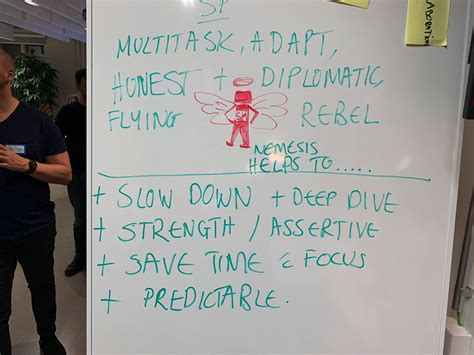 SP
MULTITASK, ADAPT,
HONEST + DIPLOMATIC,
FLYING REBEL
NEMESIS
HELPS TO.....
+ SLOW DOWN + DEEP DIVE
+ STRENGTH / ASSERTIVE
+ SAVE TIME & FOCUS
+ PREDICTABLE.